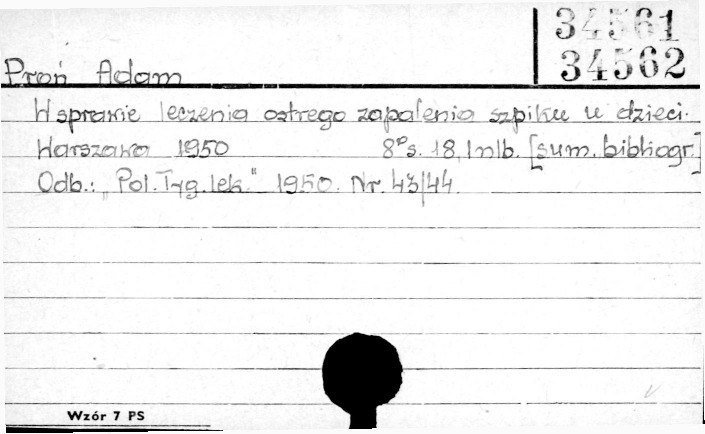 34561
34562
Proń Adam
W sprawie leczenia ostrego zapalenia szpiku u dzieci.
Warszawa 1950 8° s. 18, 1 nlb. [sum. bibliogr.]
Odb.: "Pol. Tyg. lek." 1950. Nr. 43/44
Wzór 7 PS